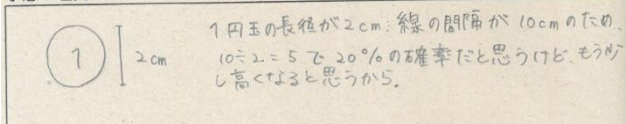 1
2cm
1円玉の長径が2cm:線の間隔が10cmのため、
10÷2=5で20%の確率だと思うけど、もう少
し高くなると思うから。